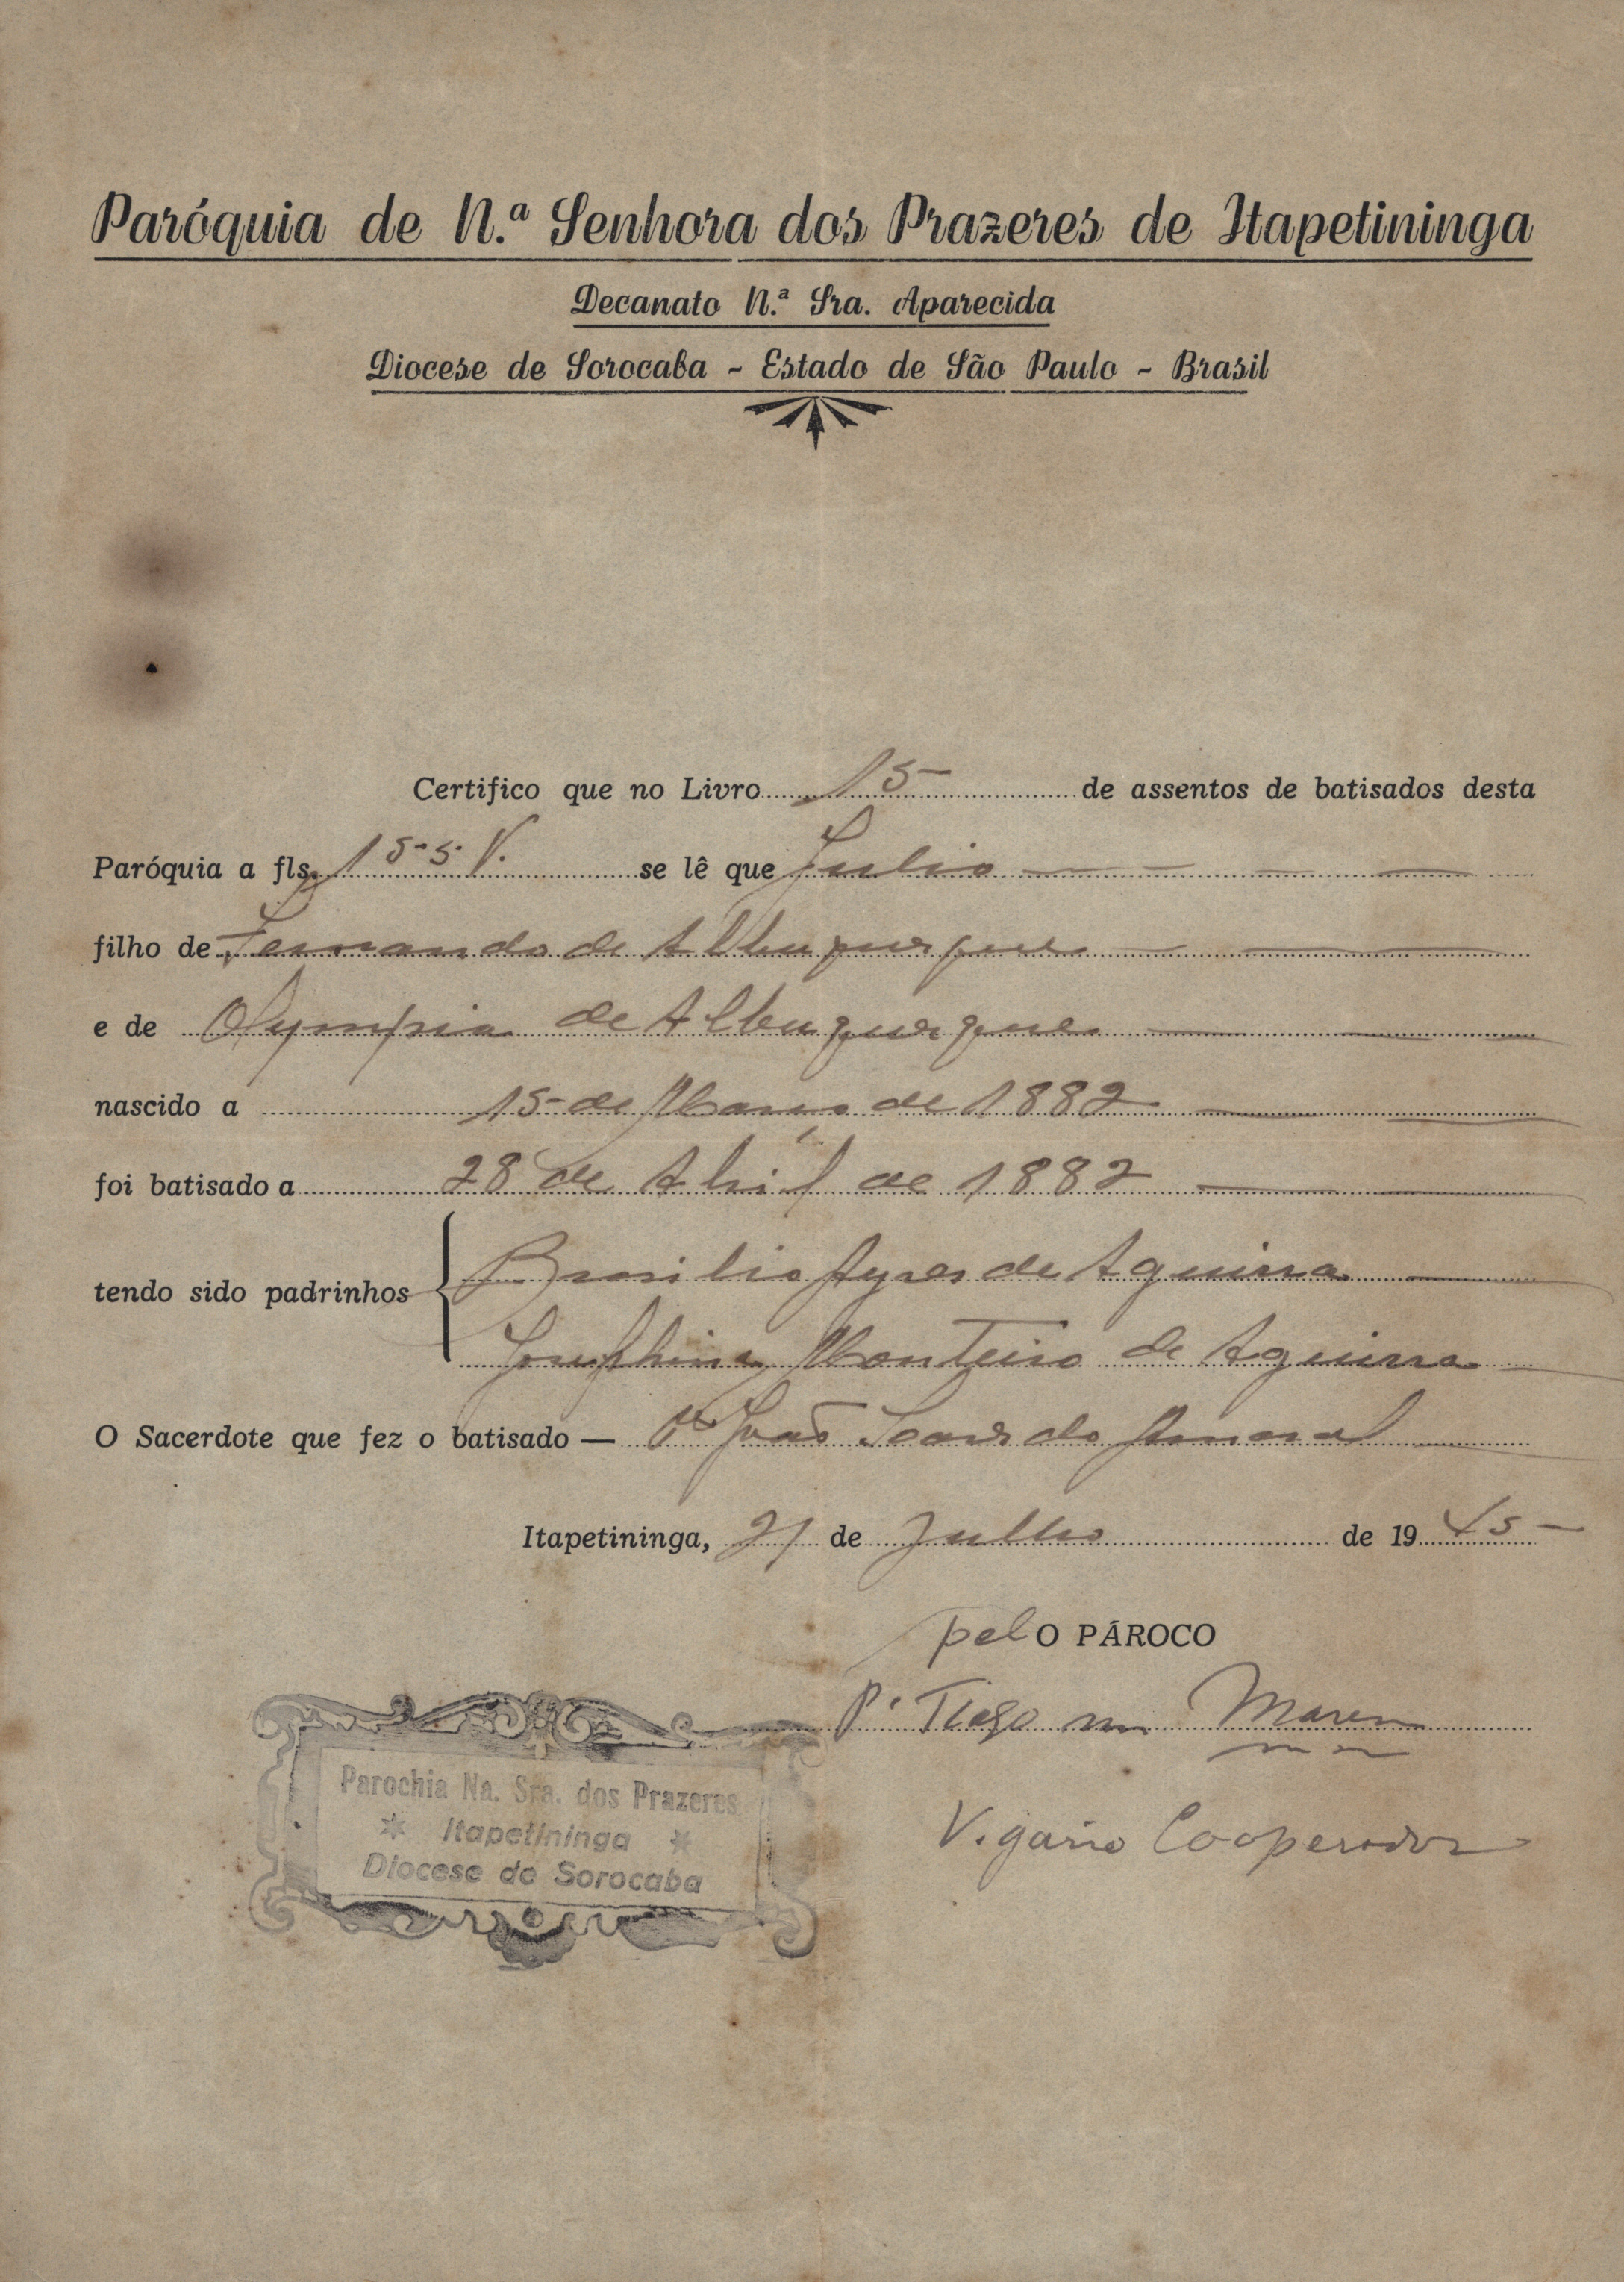 Paróquia de N.ª Senhora dos Prazeres de Itapetininga
Decanato N.ª Sra. Aparecida
Diocese de Sorocaba - Estado de São Paulo - Brasil
Certifico que no Livro 15 de assentos de batisados desta
Paróquia a fls. 155 V. se lê que Julio
filho de Fernando de Albuquerque
e de Olympia de Albuquerque
nascido a 15 de Março de 1882
foi batisado a 28 de Abril de 1882
tendo sido padrinhos
Brasilio Ayres de Aguirra
Josephina Monteiro de Aguirra
O Sacerdote que fez o batisado — Pe João Soares do Amaral
Itapetininga, 21 de Julho de 1945
pelO PÁROCO
P. Tiago
Vigario Cooperador
Parochia Na. Sra. dos Prazeres
* Itapetininga *
Diocese de Sorocaba